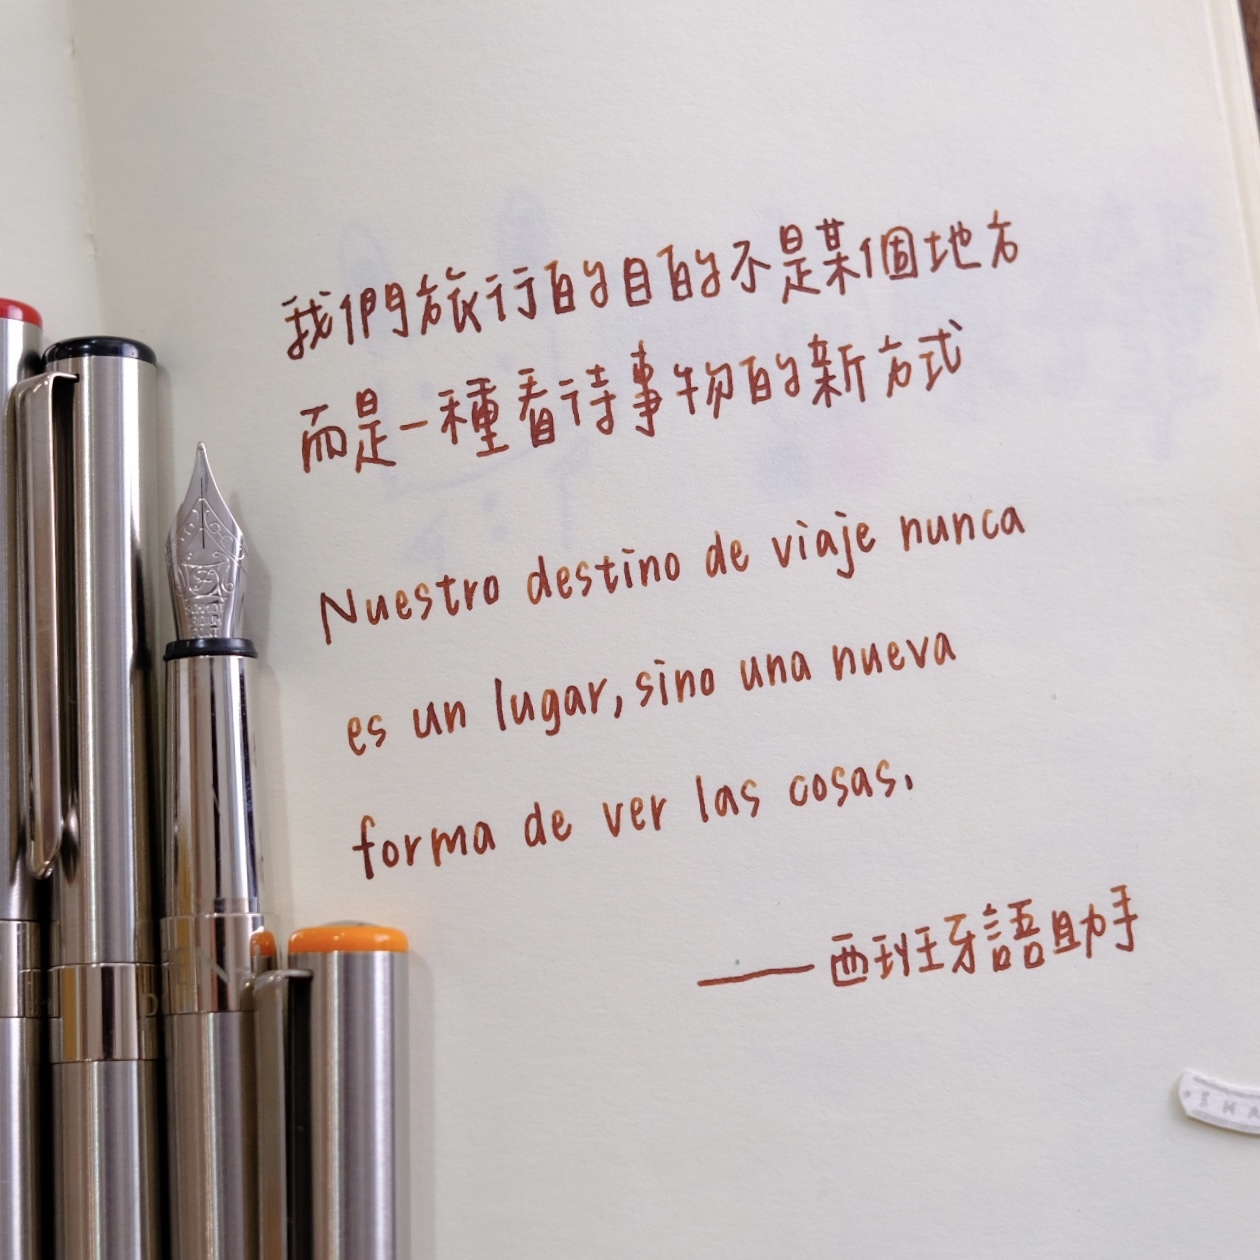 我們旅行的目的不是某個地方
而是一種看待事物的新方式
Nuestro destino de viaje nunca
es un lugar, sino una nueva
forma de ver las cosas.
——西班牙語助手
SHA